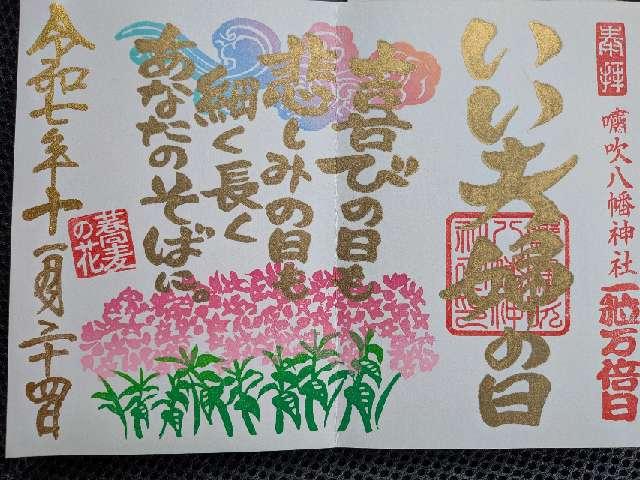 奉拝
嘯吹八幡神社
一粒万倍日
いい夫婦の日
喜びの日も
悲しみの日も
細く長く
あなたのそばに。
蕎麦
の花
令和七年十一月二十四日